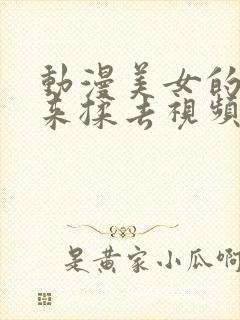 動漫美女的
来揉去視頻
是黄家小瓜啊